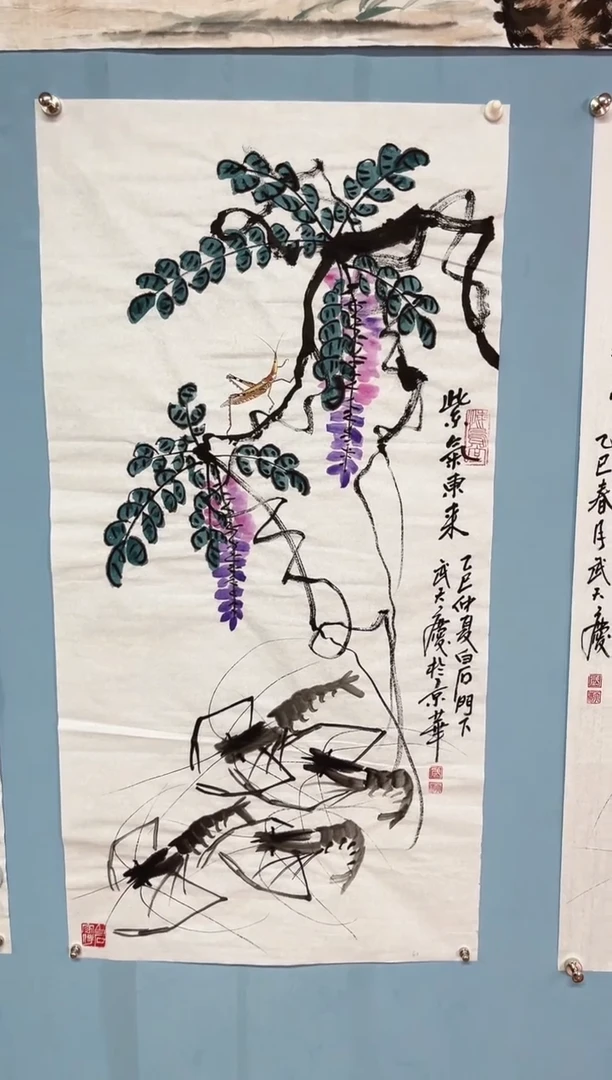 紫氣東来
乙巳仲夏白石門下
武大慶於京華
乙巳春月武大慶